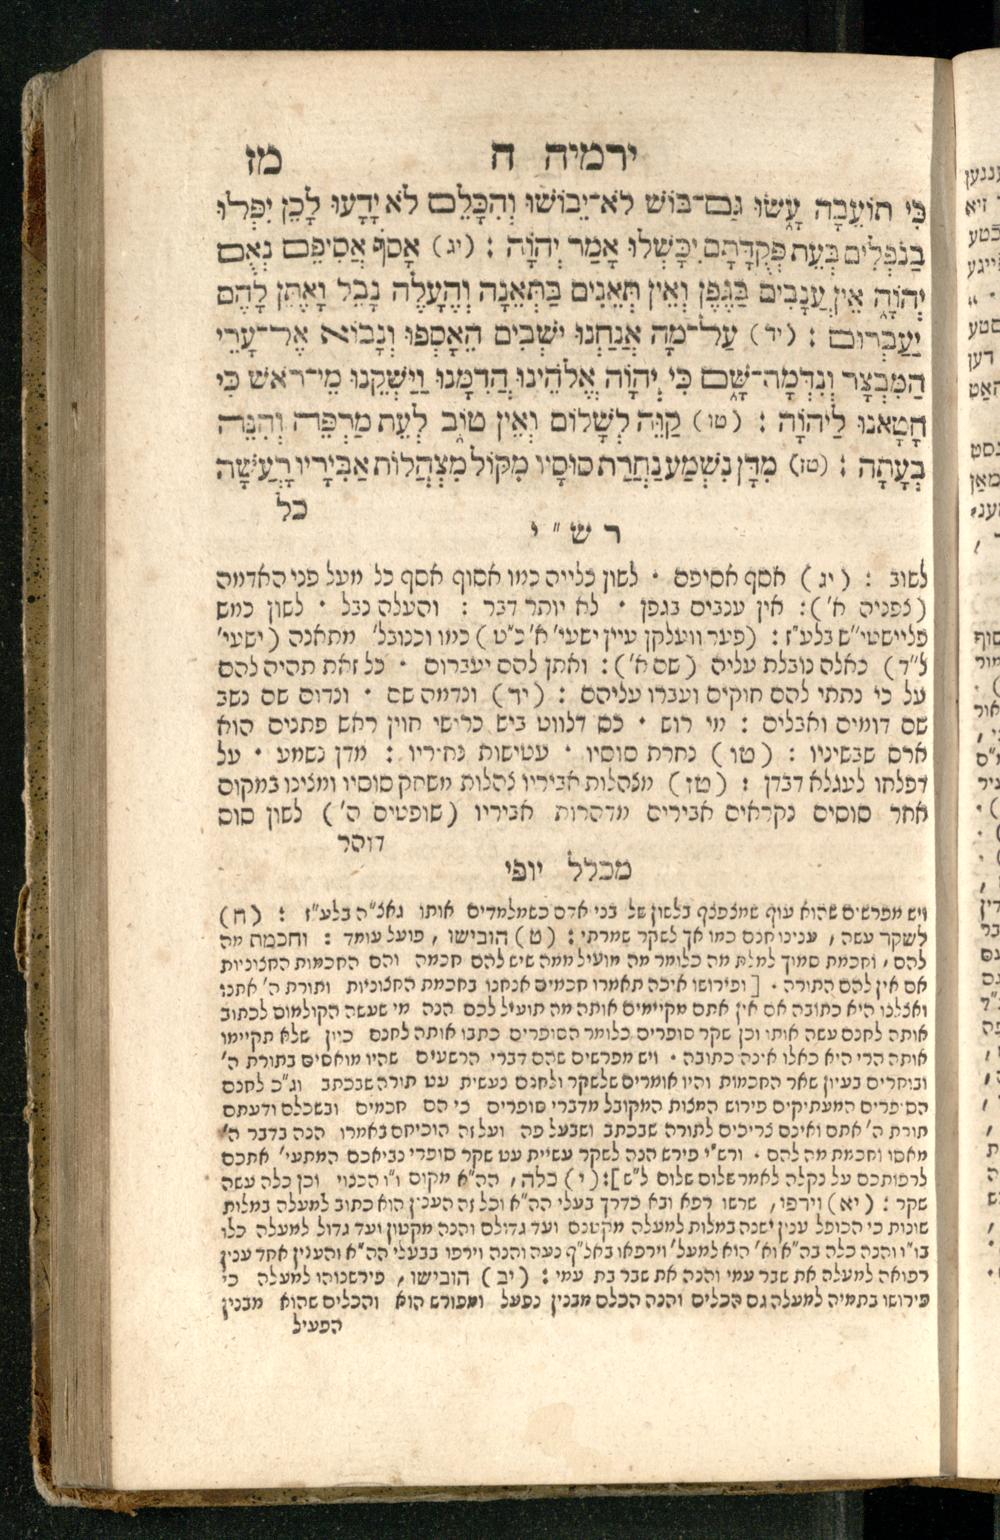 ירמיה ח מז
כִּי תוֹעֵבָה עָשׂוּ גַּם־בּוֹשׁ לֹא־יֵבוֹשׁוּ וְהִכָּלֵם לֹא יָדָעוּ לָכֵן יִפְּלוּ
בַנֹּפְלִים בְּעֵת פְּקֻדָּתָם יִכָּשְׁלוּ אָמַר יְהוָֹה : (יג) אָסֹף אֲסִיפֵם נְאֻם
יְהוָֹה אֵין עֲנָבִים בַּגֶּפֶן וְאֵין תְּאֵנִים בַּתְּאֵנָה וְהֶעָלֶה נָבֵל וָאֶתֵּן לָהֶם
יַעַבְרוּם : (יד) עַל־מָה אֲנַחְנוּ יֹשְׁבִים הֵאָסְפוּ וְנָבוֹא אֶל־עָרֵי
הַמִּבְצָר וְנִדְּמָה־שָּׁם כִּי יְהוָֹה אֱלֹהֵינוּ הֲדִמָּנוּ וַיַּשְׁקֵנוּ מֵי־רֹאשׁ כִּי
חָטָאנוּ לַיהוָֹה : (טו) קַוֵּה לְשָׁלוֹם וְאֵין טוֹב לְעֵת מַרְפֵּה וְהִנֵּה
בְעָתָה : (טז) מִדָּן נִשְׁמַע נַחֲרַת סוּסָיו מִקּוֹל מִצְהֲלוֹת אַבִּירָיו רָעֲשָׁה
כל
ר ש״י
לשוב : (יג) אסף אסיפם · לשון כלייה כמו אסוף אסף כל מעל פני האדמה
(צפניה א׳): אין ענבים בגפן · לא יותר דבר : והעלה נבל · לשון כמש
פליישטי״ש בלע״ז : (פער וועלקן עיין ישעי׳ א׳ כ״ט) כמו וכנובל׳ מתאנה (ישעי׳
ל״ד) כאלה נובלת עליה (שם א׳): ואתן להם יעברום · כל זאת תהיה להם
על כי נתתי להם חוקים ועברו עליהם : (יד) ונדמה שם · ונדום שם נשב
שם דומים ואבלים : מי רוש · כם דלווט ביש כרישי חוין ראש פתנים הוא
ארס שבשיניו : (טו) נחרת סוסיו · עטישות נחיריו : מדן נשמע · על
דפלחו לעגלא דבדן : (טז) מצהלות אביריו צהלות משחק סוסיו ומצינו במקום
אחר סוסים נקראים אבירים מדהרות אביריו (שופטים ה׳) לשון סוס
דוהר
מכלל יופי
ויש מפרשים שהוא עוף שמצפצף בלשון של בני אדם כשמלמדים אותו גאצ״ה בלע״ז : (ח)
לשקר עשה, ענינו חנם כמו אך לשקר שמרתי : (ט) הובישו, פועל עומד : וחכמת מה
להם, וחכמת סמוך למלת מה כלומר מה מועיל ממה שיש להם חכמה והם החכמות החצוניות
אם אין להם התורה · [ ופירושו איכה תאמרו חכמים אנחנו בחכמת החצוניות ותורת ה׳ אתנו
ואצלנו היא כתובה אם אין אתם מקיימים אותה מה תועיל לכם הנה מי שעשה הקולמוס לכתוב
אותה לחנם עשה אותו וכן שקר סופרים כלומר הסופרים כתבו אותה לחנם כיון שלא תקיימו
אותה הרי היא כאלו אינה כתובה · ויש מפרשים שהם דברי הרשעים שהיו מואסים בתורת ה׳
ובוחרים בעיון שאר החכמות והיו אומרים שלשקר ולחנם נעשית עט תורה שבכתב וג״כ לחנם
הסופרים המעתיקים פירוש המצות המקובל מדברי סופרים כי הם חכמים ובשכלם ודעתם
תורת ה׳ אתם ואינם צריכים לתורה שבכתב ושבעל פה ועל זה הוכיחם באמרו הנה בדבר ה׳
מאסו וחכמת מה להם · ורש״י פירש הנה לשקר עשיית עט שקר סופרי נביאכם המתעי׳ אתכם
לרפותכם על נקלה לאמר שלום שלום ל״ש]: (י) כלה, הה״א מקום ו״ו הכנוי וכן כלה עשה
שקר : (יא) וירפו, שרשו רפא ובא כדרך בעלי הה״א וכל זה הענין הוא כתוב למעלה במלות
שונות כי הכופל ענין ישנה במלות למעלה מקטנם ועד גדולם והנה מקטון ועד גדול למעלה כלו
בו״ו והנה כלה בה״א וא׳ הוא למעל׳ וירפאו באל״ף נעה והנה וירפו בבעלי הה״א והענין אחד ענין
רפואה למעלה את שבר עמי והנה את שבר בת עמי : (יב) הובישו, פירשנוהו למעלה כי
פירושו בתמיה למעלה גם הכלים והנה הכלם מבנין נפעל ומפורש הוא והכלים שהוא מבנין
הפעיל